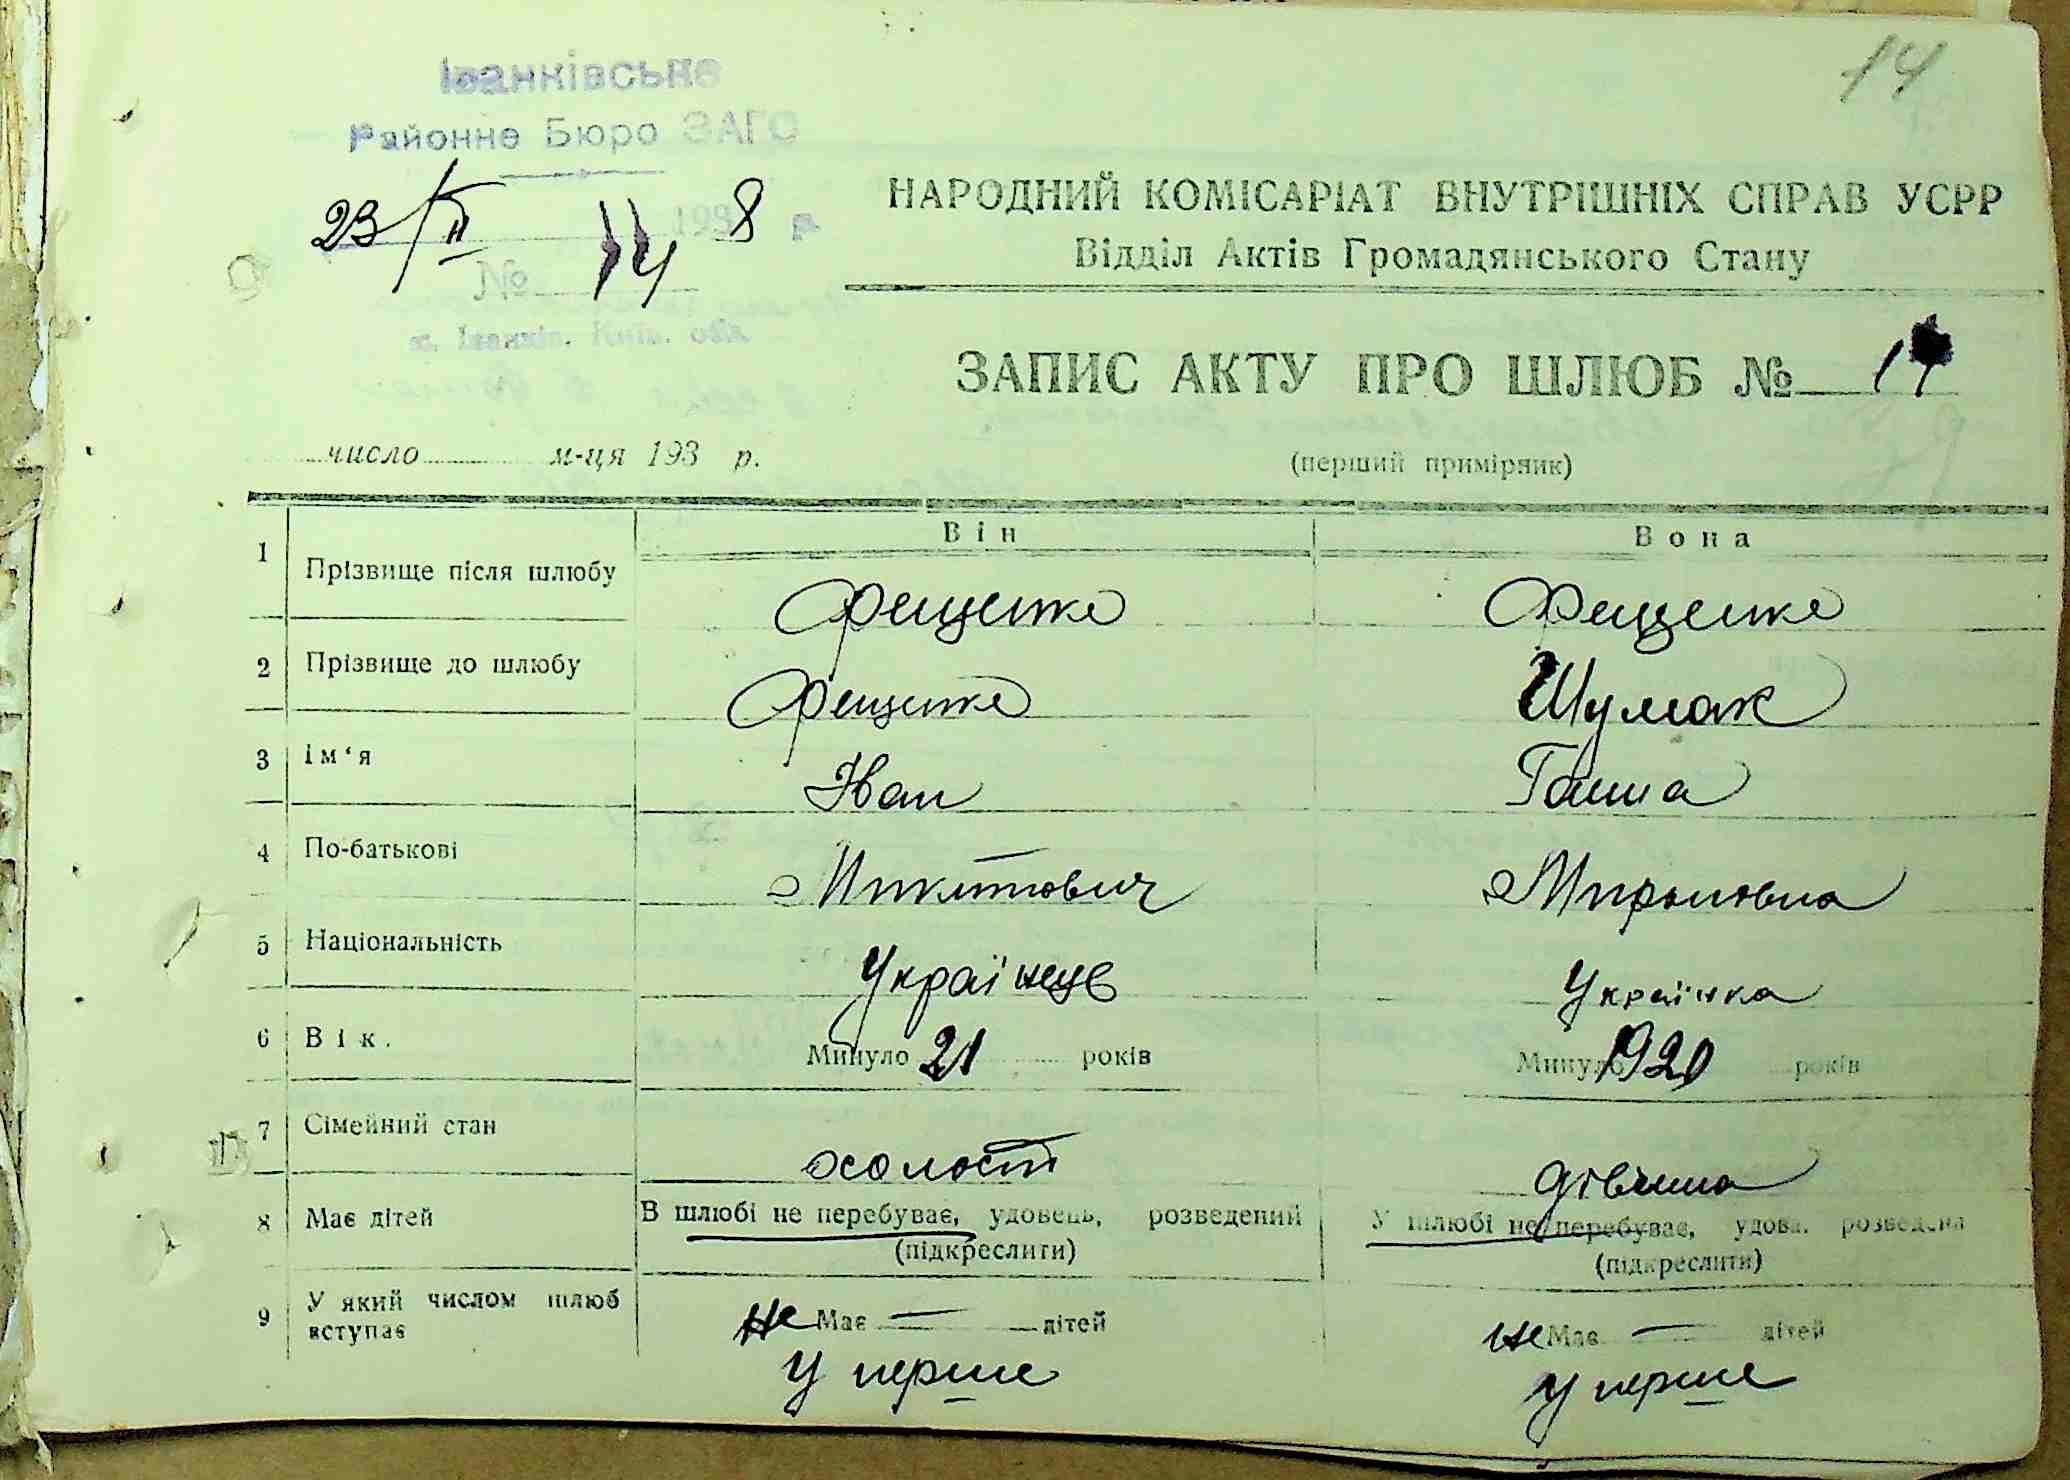 14
Іванківське
Районне Бюро ЗАГС
23/II 1938 р.
№ 14
м. Іванків, Київ. обл.
НАРОДНИЙ КОМІСАРІАТ ВНУТРІШНІХ СПРАВ УСРР
Відділ Актів Громадянського Стану
ЗАПИС АКТУ ПРО ШЛЮБ № 14
число м-ця 193 р.
(перший примірник)
Він Вона
1 Прізвище після шлюбу Фещенко Фещенко
2 Прізвище до шлюбу Фещенко Шумак
3 Ім‘я Іван Ганна
4 По-батькові Микитович Мироновна
5 Національність Українець Українка
6 Вік. Минуло 21 років Минуло 1920 років
7 Сімейний стан холост дівчина
В шлюбі не перебуває, удовець, розведений У шлюбі не перебуває, удова, розведена
(підкреслити) (підкреслити)
8 Має дітей не Має — дітей не Має — дітей
9 У який числом шлюб вступає у перше у перше